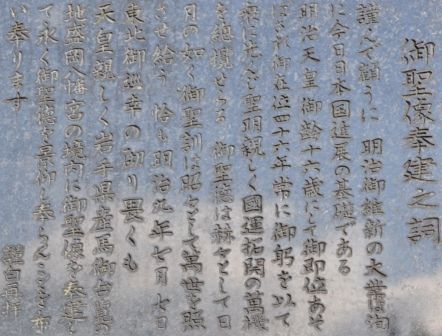 御聖像奉建之詞
謹んで顧うに 明治御維新の大業は洵
に今日日本国進展の基礎である
明治天皇御齢十六歳にして御即位あそ
ばされ御在位四十六年常に御躬を以て
衆に先んじ聖明親しく國運拓開の萬機
を総攬せらる 御聖徳は赫々として日
月の如く御聖訓は昭々として萬世を照
させ給う 恰も明治九年七月七日
東北御巡幸の砌り畏くも
天皇親しく岩手県産馬御台覧の
地盛岡八幡宮の境内に御聖像を奉建し
て永く御聖徳を景仰し奉らんことを希
い奉ります
謹白再拝